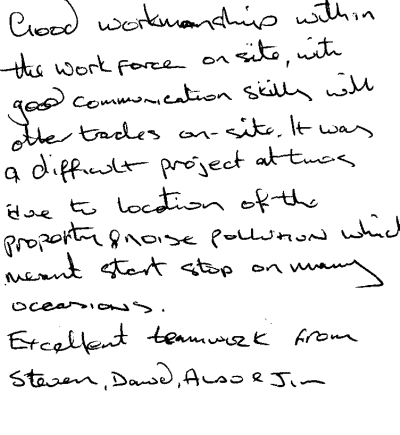 Good workmanship within
the workforce on site, with
good communication skills with
other trades on-site. It was
a difficult project at times
due to location of the
property & noise pollution which
meant start stop on many
occasions.
Excellent teamwork from
Steven, David, & Jim